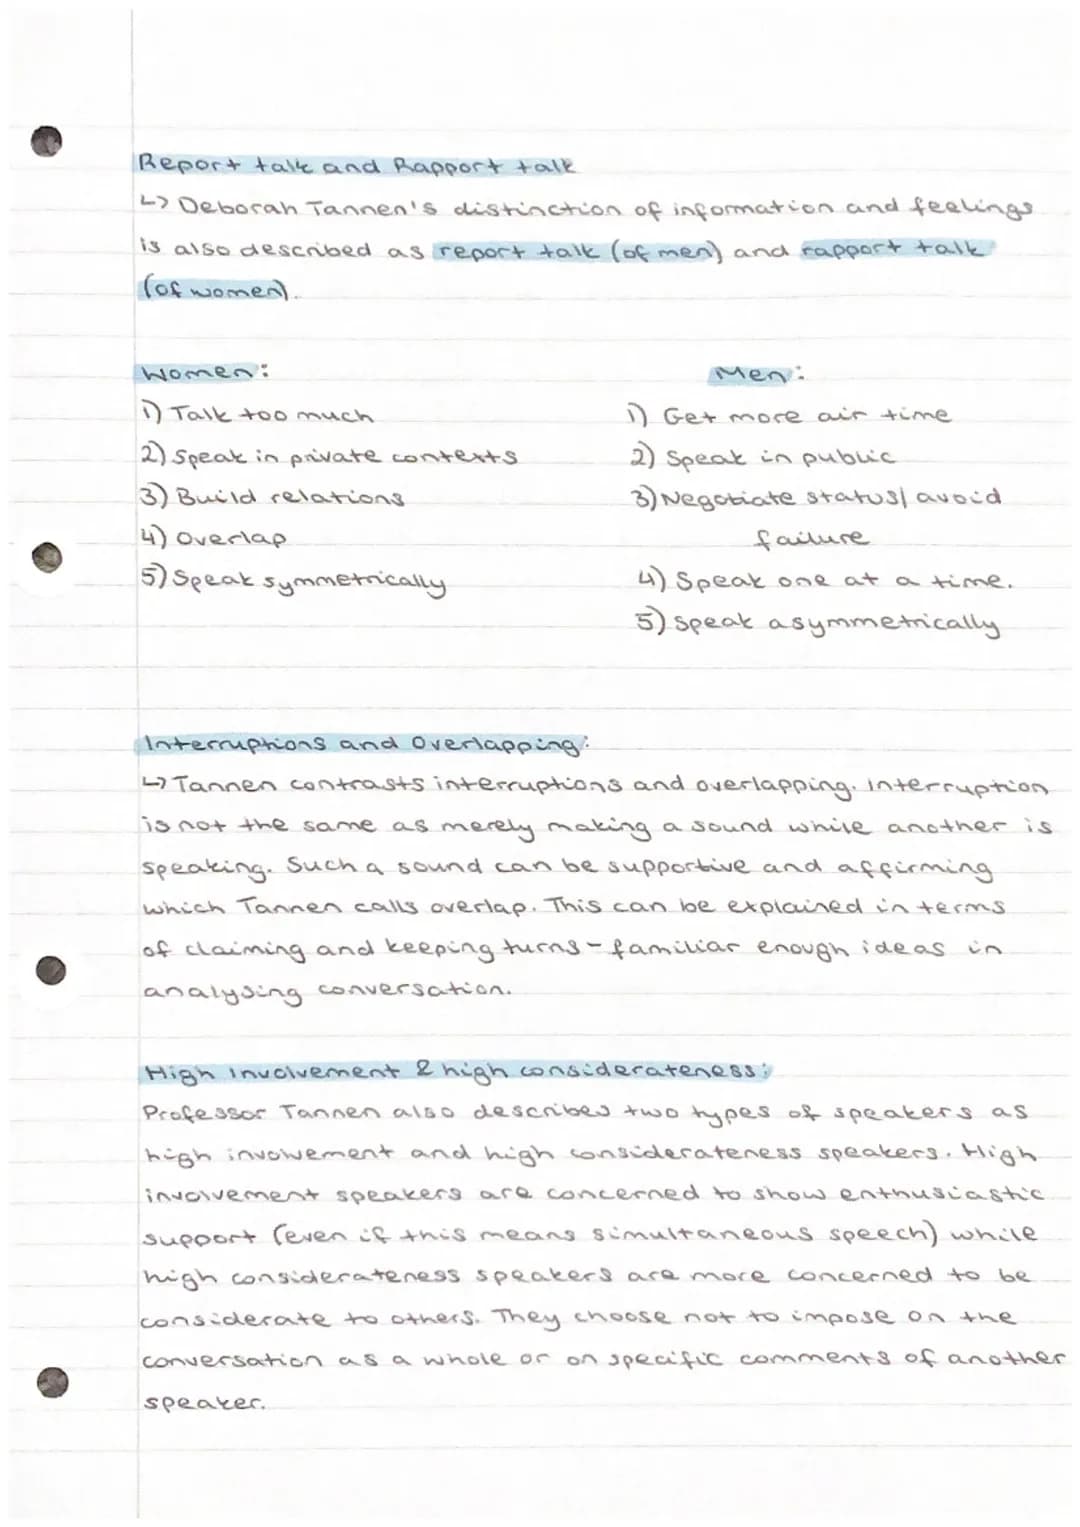 Report talk and Rapport talk
↳ Deborah Tannen's distinction of information and feelings
is also described as report talk (of men) and rapport talk
(of women).
Women:
1) Talk too much
2) Speak in private contexts
3) Build relations
4) Overlap
5) Speak symmetrically
Men:
1) Get more air time
2) Speak in public
3) Negotiate status/ avoid
failure
4) Speak one at a time.
5) Speak asymmetrically
Interruptions and Overlapping:
↳ Tannen contrasts interruptions and overlapping. Interruption
is not the same as merely making a sound while another is
speaking. Such a sound can be supportive and affirming
which Tannen calls overlap. This can be explained in terms
of claiming and keeping turns - familiar enough ideas in
analysing conversation.
High Involvement & high considerateness:
Professor Tannen also describes two types of speakers as
high involvement and high considerateness speakers. High
involvement speakers are concerned to show enthusiastic
support (even if this means simultaneous speech) while
high considerateness speakers are more concerned to be
considerate to others. They choose not to impose on the
conversation as a whole or on specific comments of another
speaker.